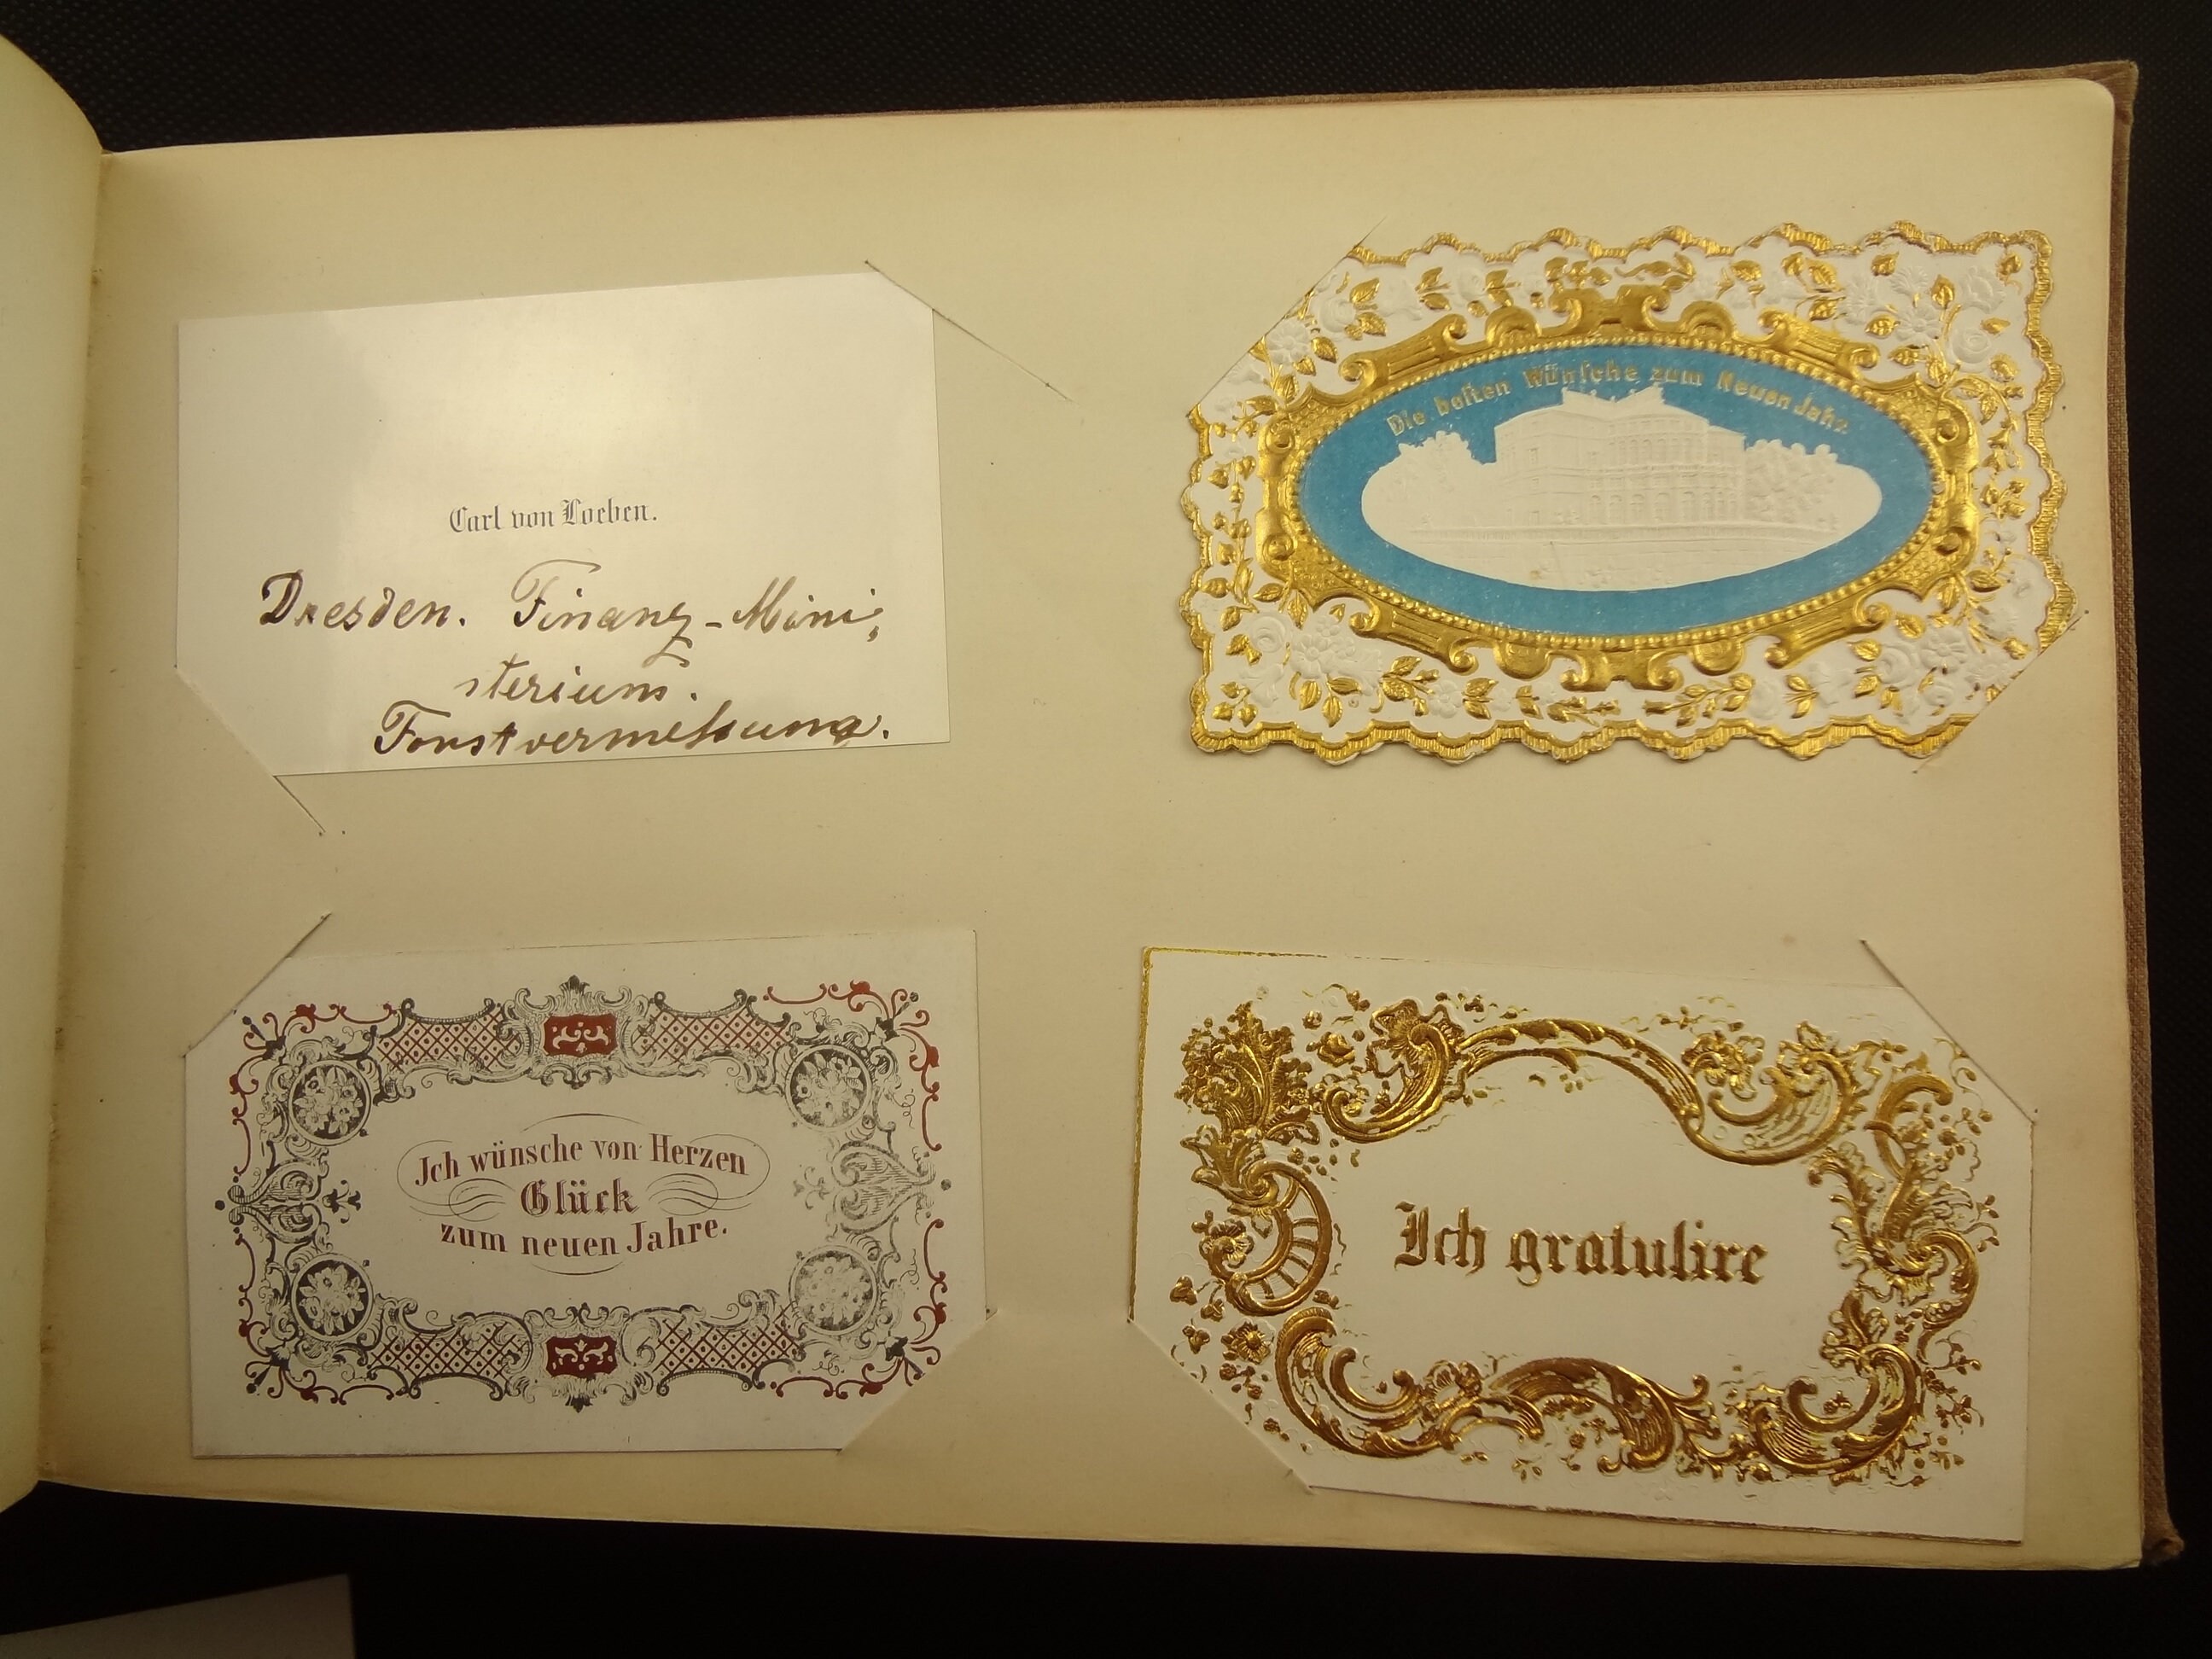 Carl von Loeben.
Dresden. Finanz-Mini-
sterium.
Forstvermessung.
Die besten Wünsche zum Neuen Jahr
Ich wünsche von Herzen
Glück
zum neuen Jahre.
Ich gratulire